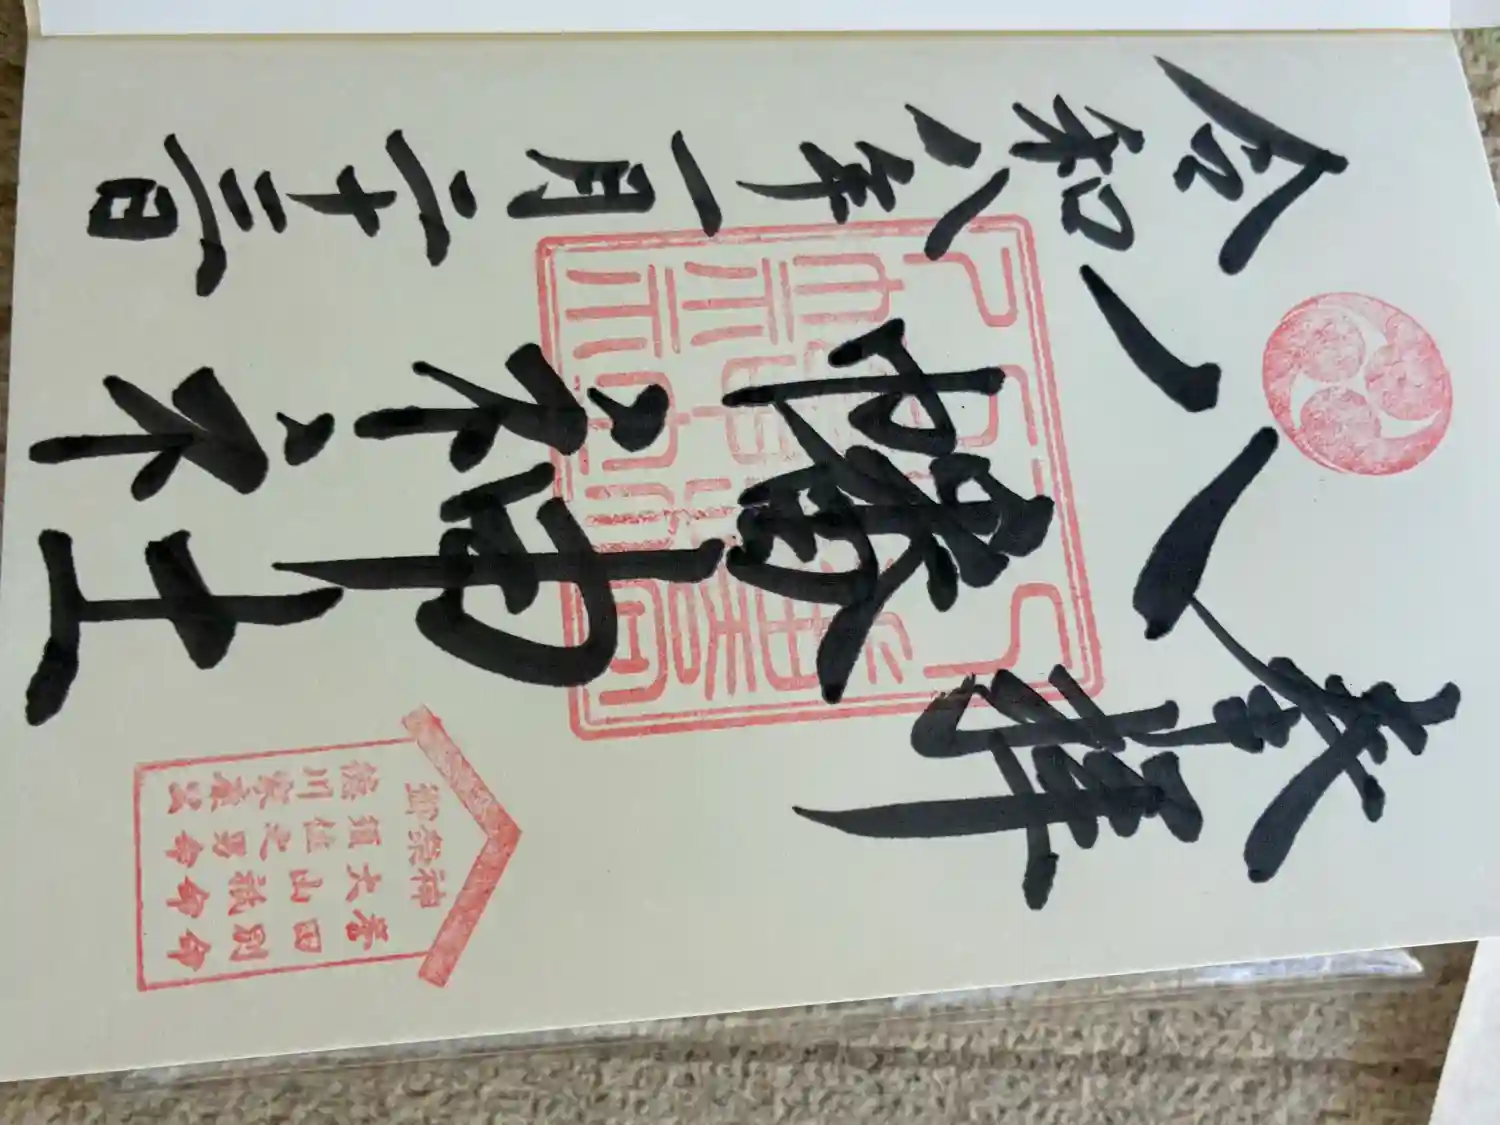 奉拝
八幡神社
令和八年一月二十三日
御祭神
誉田別命
大山祇命
須佐之男命
徳川家康公